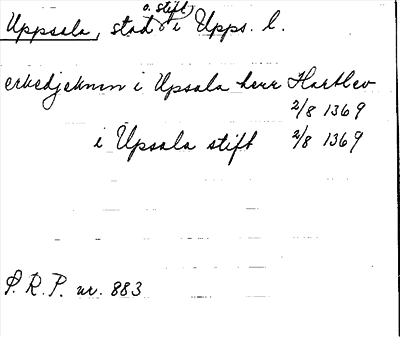 Uppsala, stad o. stift i Upps. l.
erkedjeknen i Upsala herr Hartlev
2/8 1369
i Upsala stift 2/8 1369
S.R.P. nr. 883